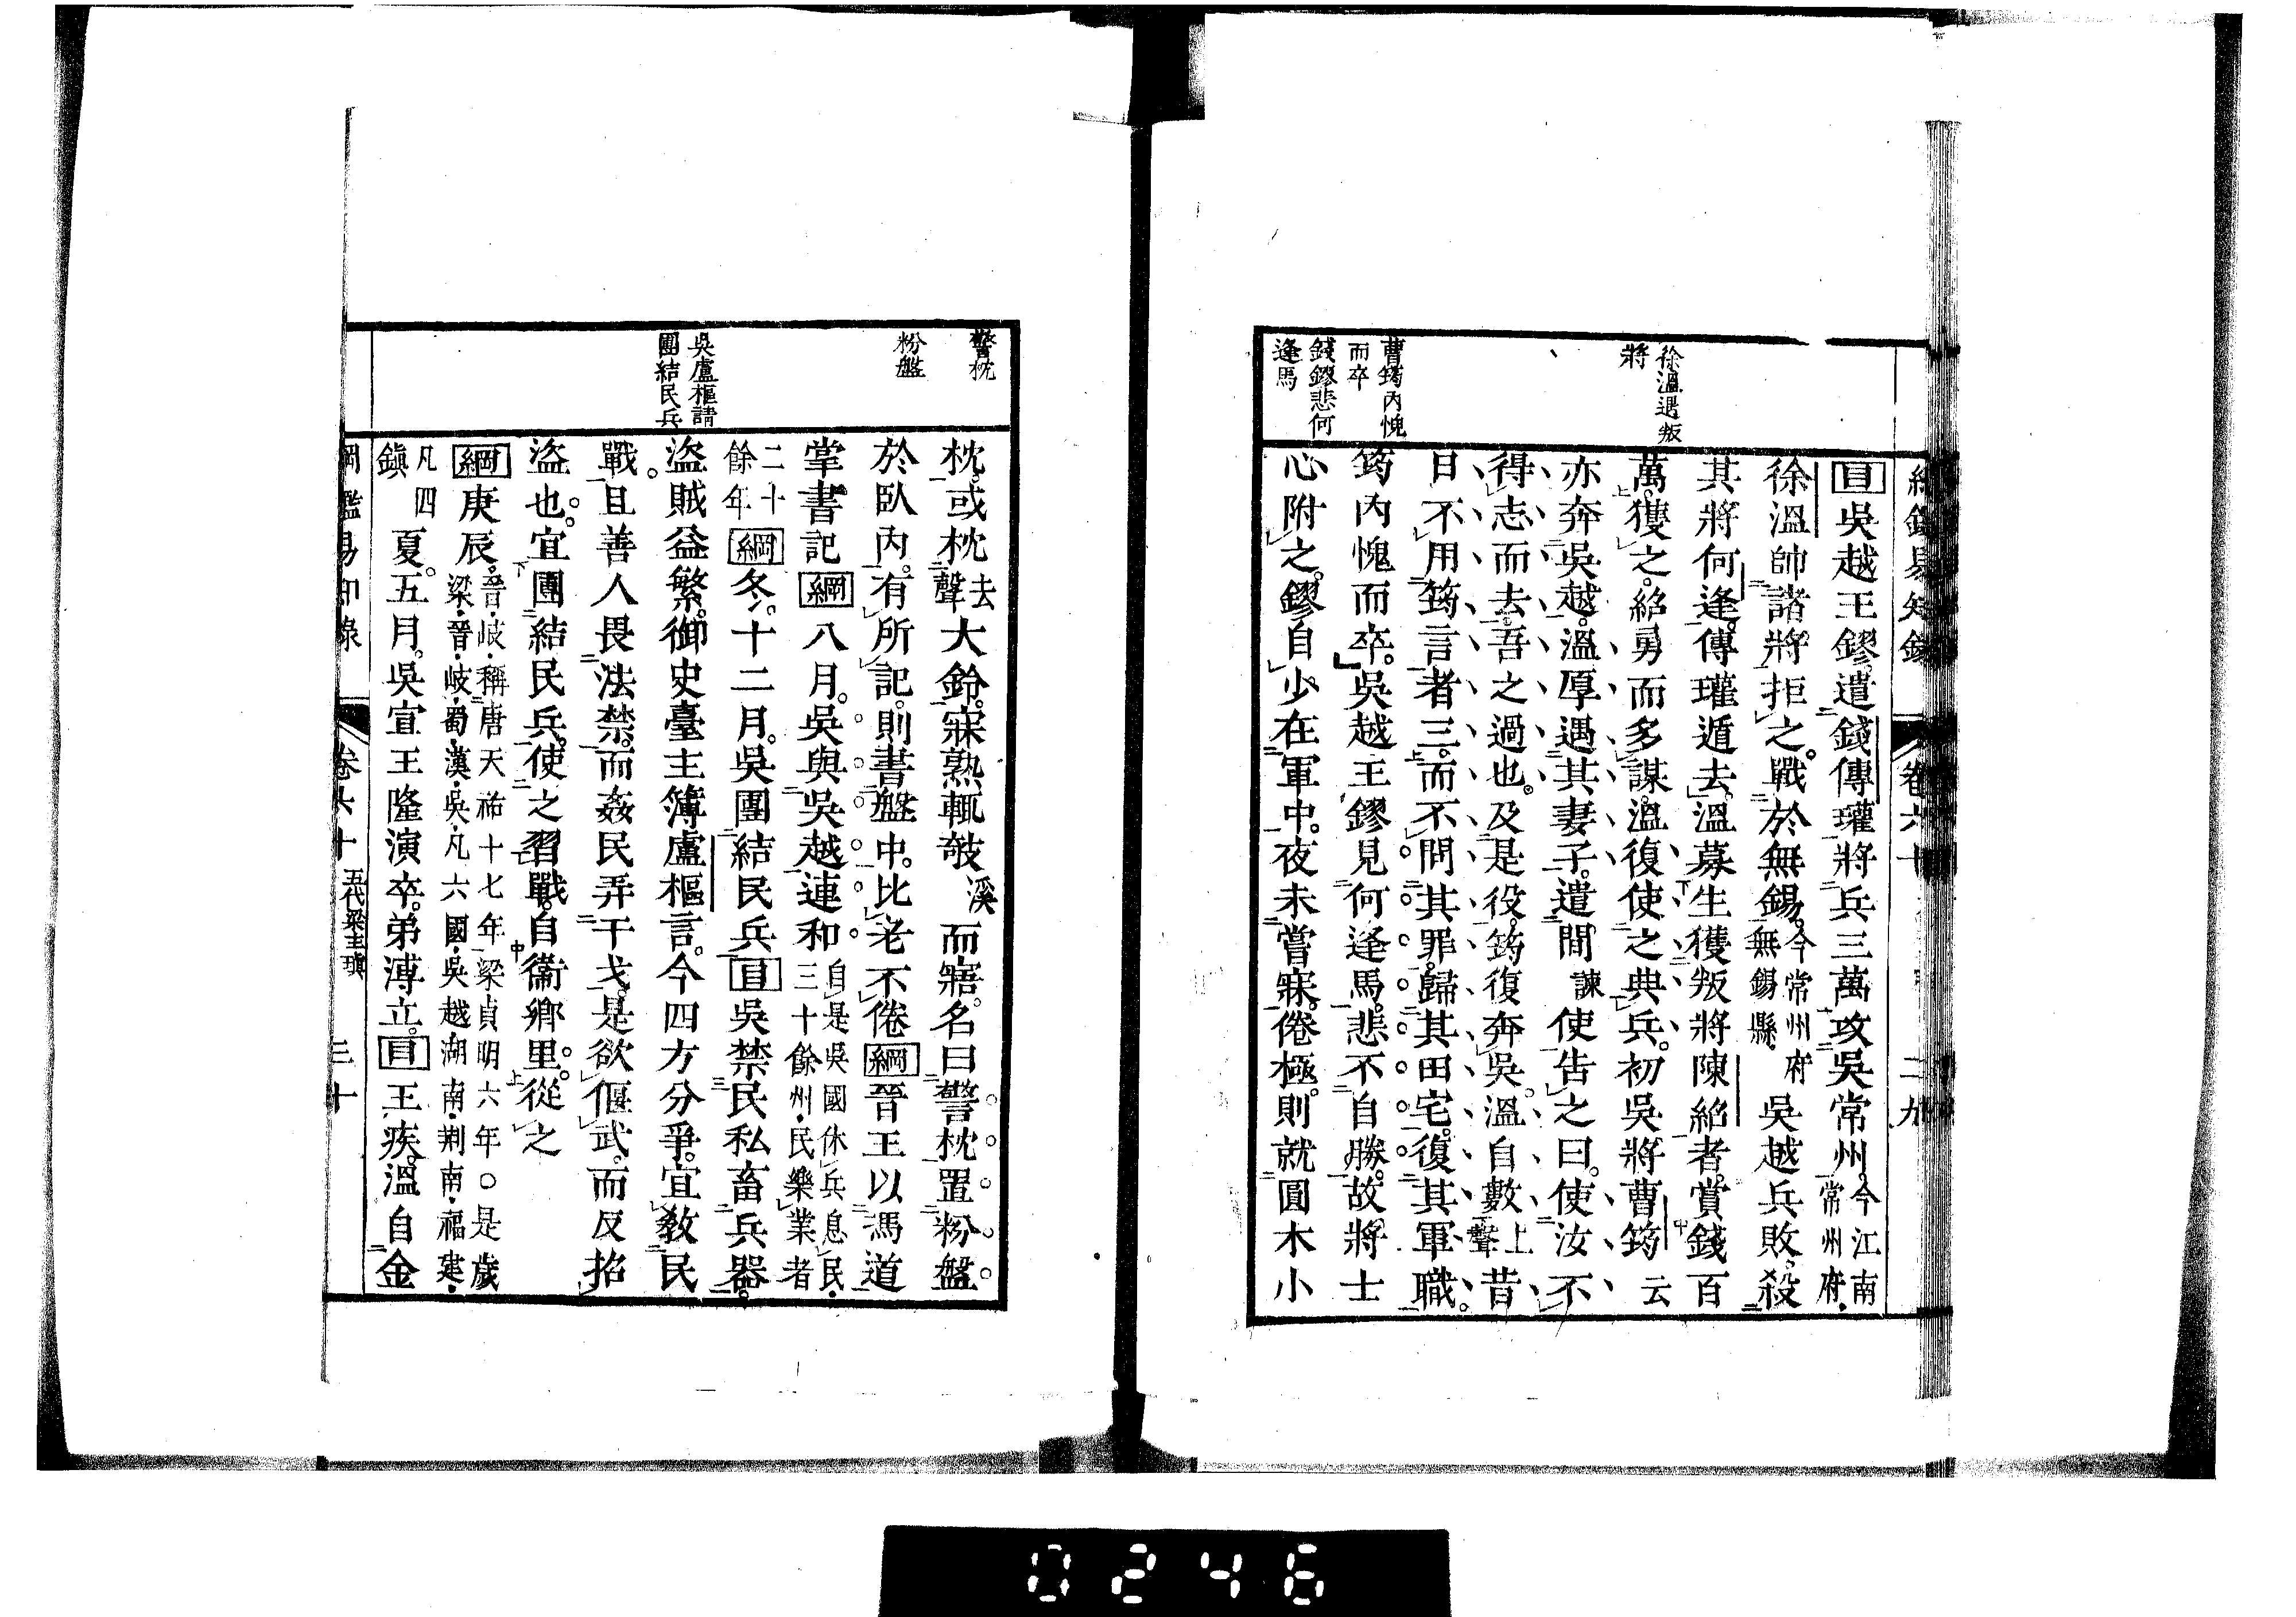 徐溫遇叛
將
曹筠內愧
而卒
錢鏐悲何
逢馬
目吳越王鏐遣錢傳瓘將兵三萬攻吳常州今江南常州府
徐溫帥諸將拒之戰於無錫今常州府無錫縣吳越兵敗殺
其將何逢傳瓘遁去溫募生獲叛將陳紹者賞錢百
萬獲之紹勇而多謀溫復使之典兵初吳將曹筠云
亦奔吳越溫厚遇其妻子遣間諫使告之曰使汝不
得志而去吾之過也及是役筠復奔吳溫自數上聲昔
日不用筠言者三而不問其罪歸其田宅復其軍職
筠內愧而卒吳越王鏐見何逢馬悲不自勝故將士
心附之鏐自少在軍中夜未嘗寐倦極則就圓木小
警枕
粉盤
吳盧樞請
團結民兵
枕或枕去聲大鈴寐熟輒攲溪而寤名曰警枕置粉盤
於臥內有所記則書盤中比老不倦綱晉王以馮道
掌書記綱八月吳與吳越連和自是吳國休兵息民三十餘州民樂業者
二十餘年綱冬十二月吳團結民兵目吳禁民私畜兵器
盜賊益繁御史臺主簿盧樞言今四方分爭宜教民
戰且善人畏法禁而姦民弄干戈是欲偃武而反招
盜也宜團結民兵使之習戰自衞鄉里從之
綱庚辰晉岐稱唐天祐十七年梁貞明六年○是歲梁晉岐蜀漢吳凡六國吳越湖南荊南福建
凡四鎮夏五月吳宣王隆演卒弟溥立目王疾溫自金
綱鑑易知錄 卷六十 五代梁主瑱 三十
0246